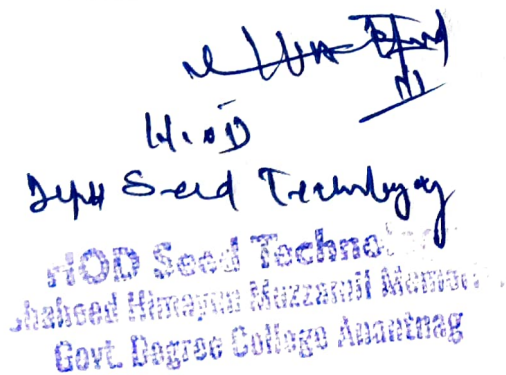 H.O.D
Deptt Seed Technology
HOD Seed Technolo
Shaheed Himayun Muzzamil Memor
Govt. Degree College Anantnag